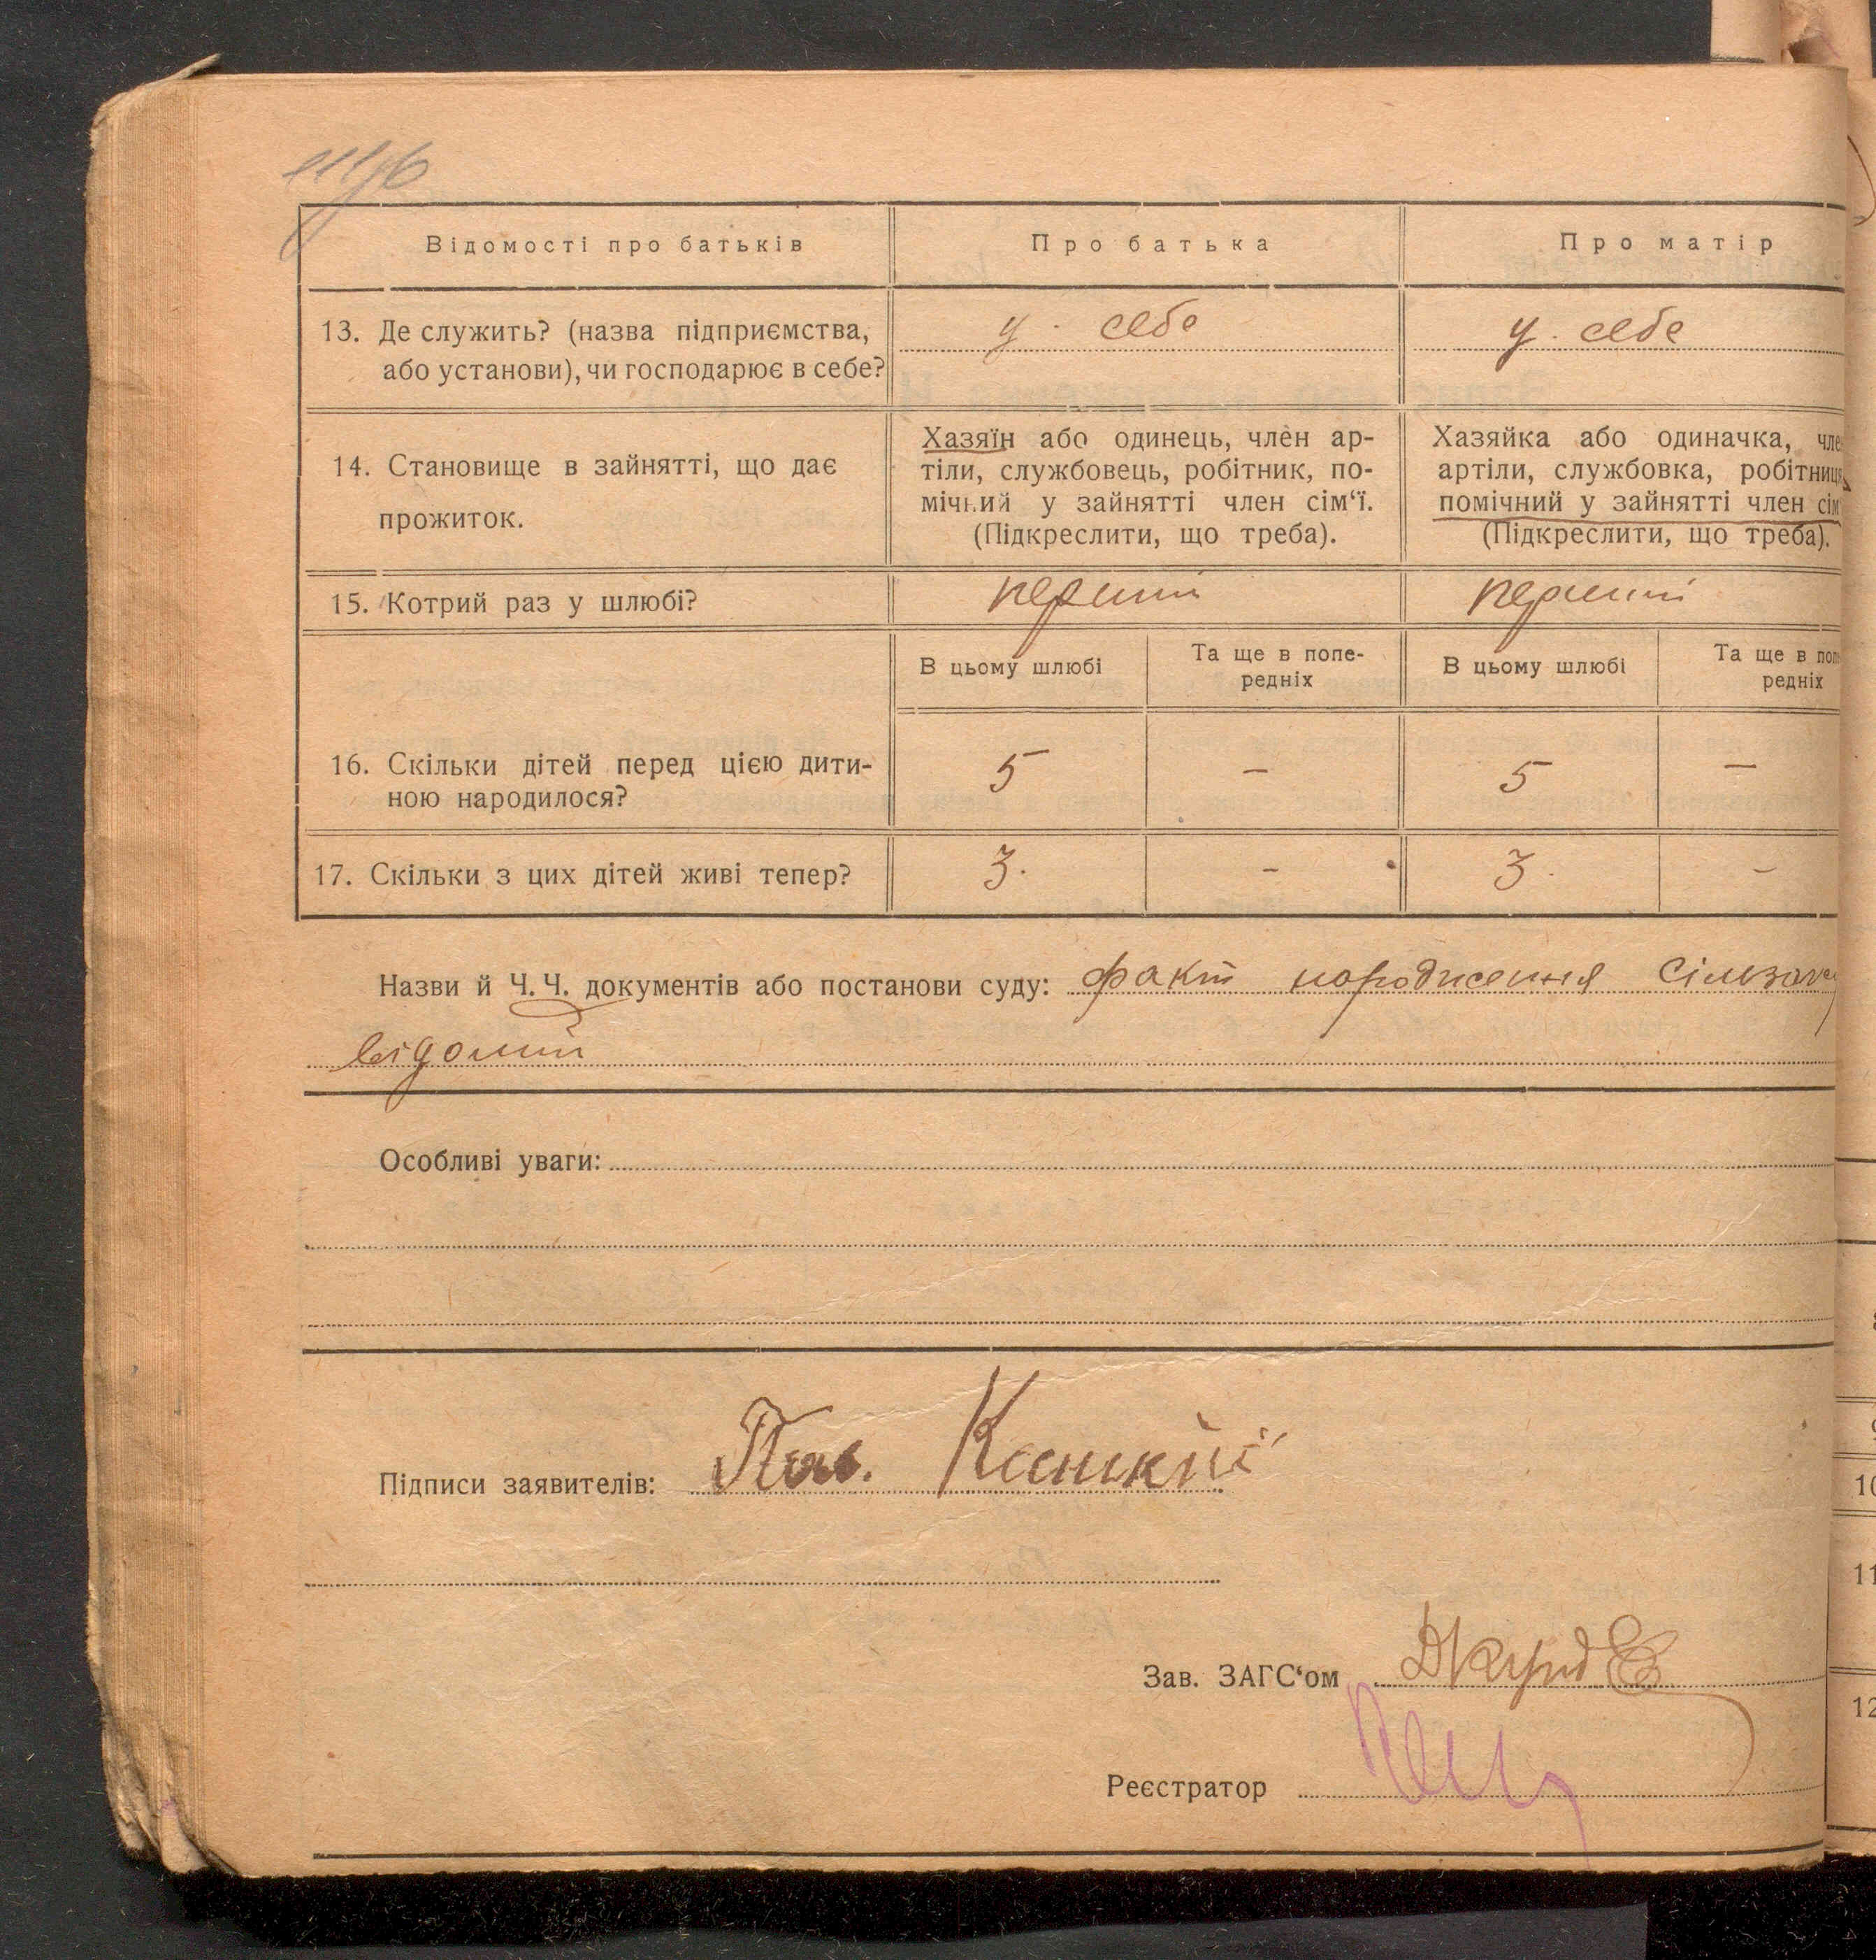 Відомості про батьків
Про батька
Про матір
13. Де служить? (назва підприємства,
або установи), чи господарює в себе?
у себе
у себе
14. Становище в зайнятті, що дає
прожиток.
Хазяїн або одинець, член ар-
тіли, службовець, робітник, по-
мічний у зайнятті член сім‘ї.
(Підкреслити, що треба).
Хазяйка або одиначка, чле
артіли, службовка, робітниця,
помічний у зайнятті член сім
(Підкреслити, що треба).
15. Котрий раз у шлюбі?
перший
перший
В цьому шлюбі
Та ще в попе-
редніх
В цьому шлюбі
Та ще в попе
редніх
16. Скільки дітей перед цією дити-
ною народилося?
5
–
5
–
17. Скільки з цих дітей живі тепер?
3.
–
3.
–
Назви й Ч. Ч. документів або постанови суду: факт народження
відомий
Особливі уваги:
Підписи заявителів: Пав.
Зав. ЗАГС‘ом
Реєстратор
9
10
11
12